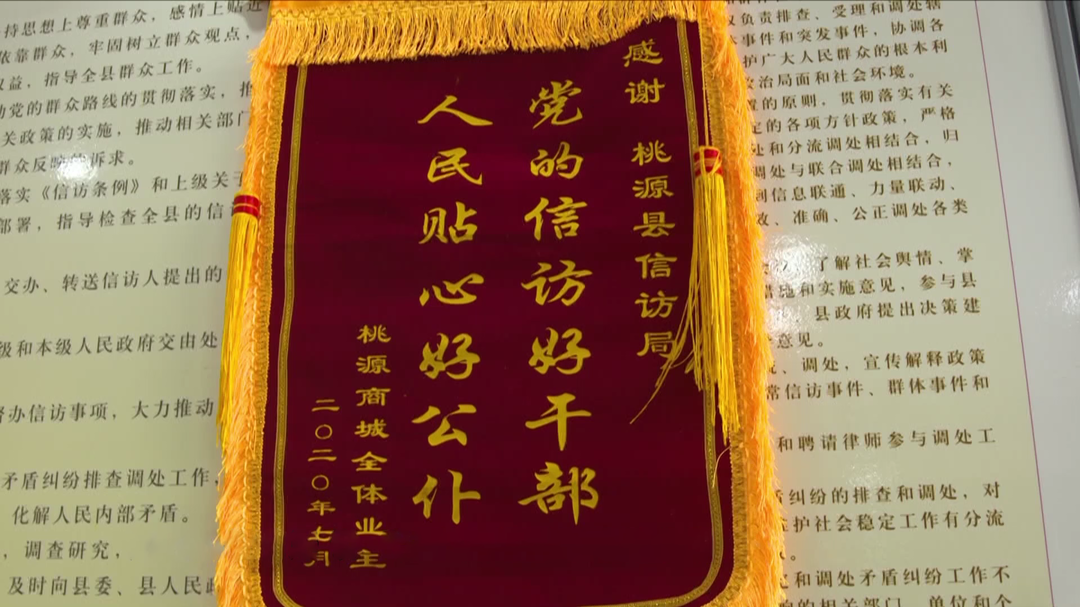 感谢 桃源县信访局
党的信访好干部
人民贴心好公仆
桃源商城全体业主
二〇二〇年七月
持思想上尊重群众，感情上贴近
依靠群众，牢固树立群众观点，
权益，指导全县群众工作。
动党的群众路线的贯彻落实，推
关政策的实施，推动相关部门
群众反映的诉求。
落实《信访条例》和上级关于
部署，指导检查全县的信
交办、转送信访人提出的
级和本级人民政府交由处
督办信访事项，大力推动
矛盾纠纷排查调处工作，
化解人民内部矛盾。
，调查研究，
及时向县委、县人民政
负责排查、受理和调处辖
事件和突发事件，协调各
护广大人民群众的根本利
政治局面和社会环境。
置的原则，贯彻落实有关
定的各项方针政策，严格
处和分流调处相结合，归
调处与联合调处相结合，
到信息联通、力量联动、
、准确、公正调处各类
了解社会舆情、掌
措施和实施意见，参与县
县政府提出决策建
意见。
、调处，宣传解释政策
常信访事件、群体事件和
和聘请律师参与调处工
盾纠纷的排查和调处，对
维护社会稳定工作有分流
和调处矛盾纠纷工作不
的相关部门、单位和个